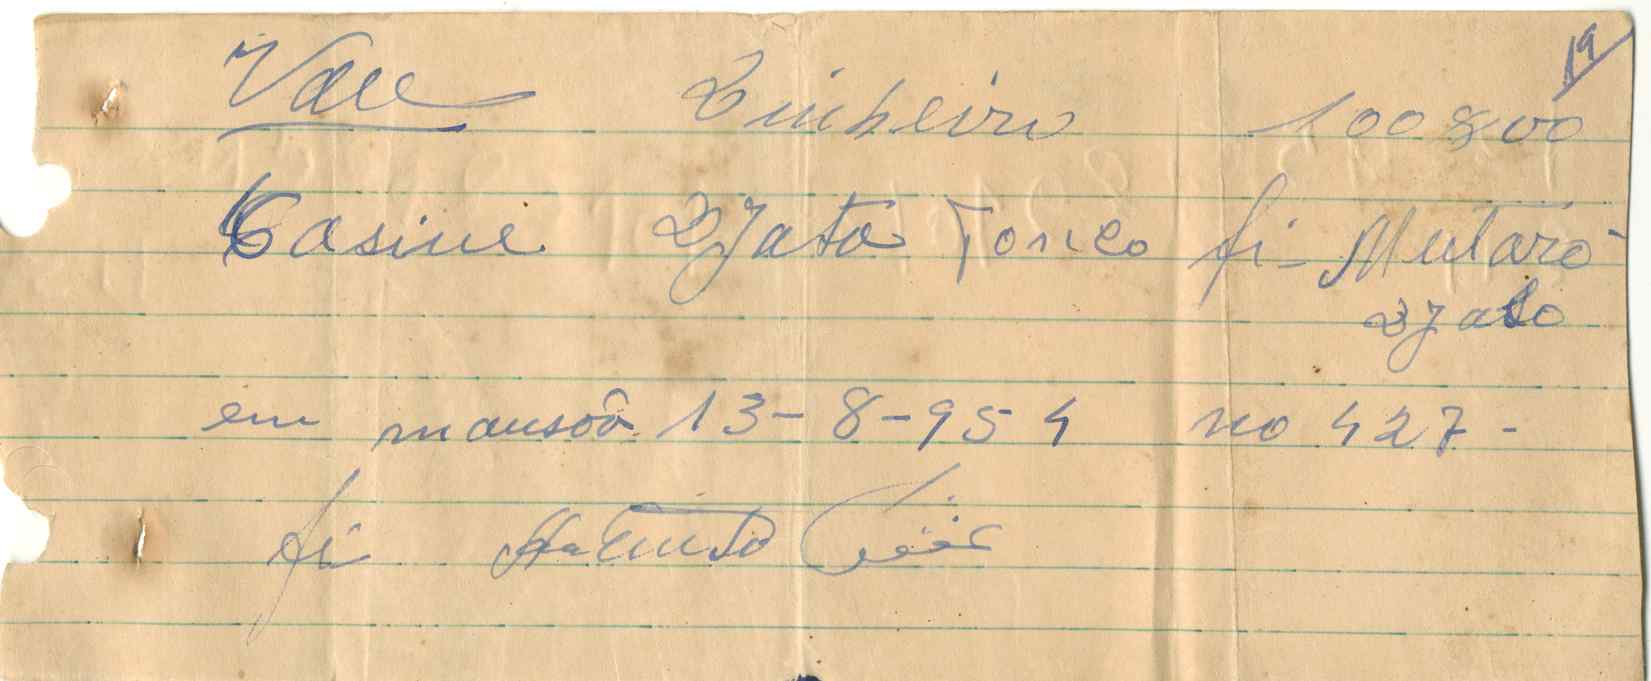 19
Vale Dinheiro 100$00
Casine Djato Tonco fi- Mutaro
Djato
em mansoâ 13-8-954 no 427-
fi